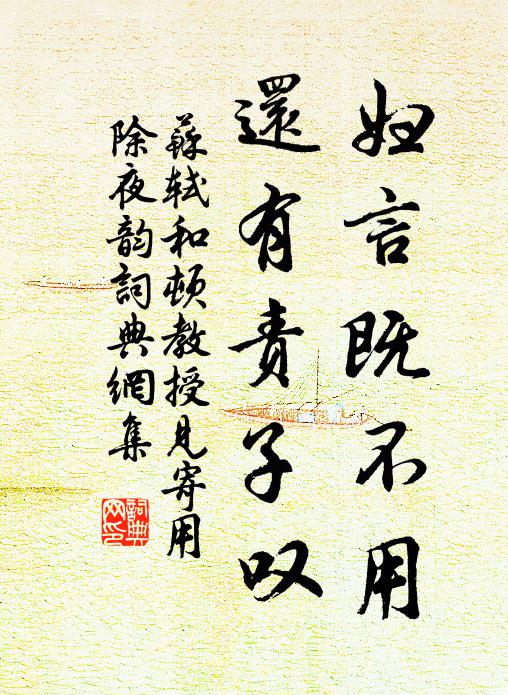 妇言既不用
還有責子叹
蘇軾和頓教授見寄用
除夜韵詞典網集
詞典
网印